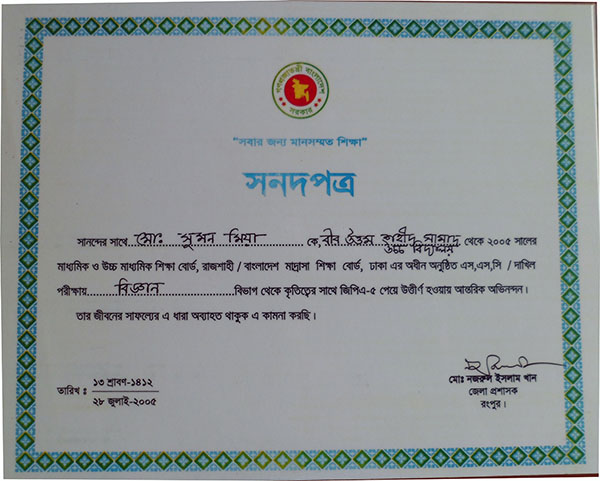 গণপ্রজাতন্ত্রী বাংলাদেশ
সরকার
"সবার জন্য মানসম্মত শিক্ষা"
সনদপত্র
সানন্দের সাথে মোঃ সুমন মিয়া কে, বীর উত্তম শহীদ সামাদ উচ্চ বিদ্যালয় থেকে ২০০৫ সালের
মাধ্যমিক ও উচ্চ মাধ্যমিক শিক্ষা বোর্ড, রাজশাহী / বাংলাদেশ মাদ্রাসা শিক্ষা বোর্ড, ঢাকা এর অধীন অনুষ্ঠিত এস,এস,সি / দাখিল
পরীক্ষায় বিজ্ঞান বিভাগ থেকে কৃতিত্বের সাথে জিপিএ-৫ পেয়ে উত্তীর্ণ হওয়ায় আন্তরিক অভিনন্দন।
তার জীবনের সাফল্যের এ ধারা অব্যাহত থাকুক এ কামনা করছি।
তারিখ ঃ ১৩ শ্রাবণ-১৪১২
২৮ জুলাই-২০০৫
মোঃ নজরুল ইসলাম খান
জেলা প্রশাসক
রংপুর।